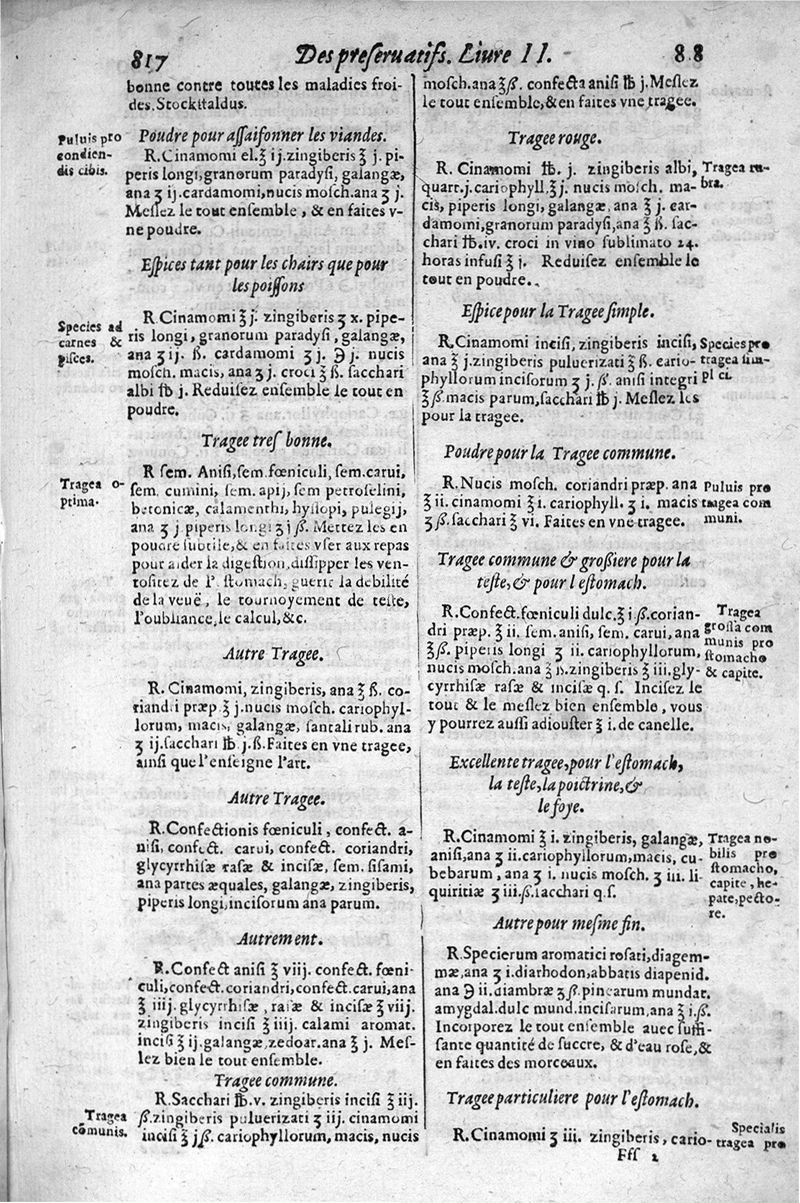 817
Des preseruatifs. Liure II.
88
bonne contre toutes les maladies froi-
des. Stockstaldus.
Puluis pro
condien-
dis cibis.
Poudre pour assaisonner les viandes.
R. Cinamomi el. ℥ ij. zingiberis ℥ j. pi-
peris longi, granorum paradysi, galangæ,
ana ʒ ij. cardamomi, nucis mosch. ana ʒ j.
Meslez le tout ensemble, & en faites v-
ne poudre.
Espices tant pour les chairs que pour
les poissons
Species ad
carnes &
pisces.
R Cinamomi ℥ j. zingiberis ʒ x. pipe-
ris longi, granorum paradysi, galangæ,
ana ʒ ij. ß. cardamomi ʒ j. ℈ j. nucis
mosch. macis, ana ʒ j. croci ℥ ß. sacchari
albi ℔ j. Reduisez ensemble le tout en
poudre.
Tragee tres bonne.
Tragea o-
ptima.
R sem. Anisi, sem. fœniculi, sem. carui,
sem. cumini, sem. apij, sem petroselini,
betonicæ, calamenthi, hyssopi, pulegij,
ana ʒ j piperis longi ʒ j ß. Mettez les en
poudre subtile, & en faites vser aux repas
pour aider la digestion, dissipper les ven-
tositez de l' stomach, guerir la debilité
de la veuë, le tournoyement de teste,
l'oubliance, le calcul, &c.
Autre Tragee.
R. Cinamomi, zingiberis, ana ℥ ß. co-
riandri præp. ℥ j. nucis mosch. cariophyl-
lorum, macis, galangæ, santali rub. ana
ʒ ij. sacchari ℔ j. ß. Faites en vne tragee,
ainsi que l'enseigne l'art.
Autre Tragee.
R. Confectionis fœniculi, confect. a-
nisi, confect. carui, confect. coriandri,
glycyrrhisæ rasæ & incisæ, sem. sisami,
ana partes æquales, galangæ, zingiberis,
piperis longi, incisorum ana parum.
Autrement.
R. Confect anisi ℥ viij. confect. fœni-
culi, confect. coriandri, confect. carui, ana
℥ iiij. glycyrrhisæ, rasæ & incisæ ℥ viij.
zingiberis incisi ℥ iij. calami aromat.
incisi ℥ ij. galangæ, zedoar. ana ℥ j. Mes-
lez bien le tout ensemble.
Tragee commune.
Tragea
cōmunis.
R. Sacchari ℔. v. zingiberis incisi ℥ iij.
ß. zingiberis puluerizati ʒ iij. cinamomi
incisi ℥ j ß. cariophyllorum, macis, nucis
mosch. ana ℥ ß. confecta anisi ℔ j. Meslez
le tout ensemble, & en faites vne tragee.
Tragee rouge.
R. Cinamomi ℔. j. zingiberis albi,
quart. j. cariophyll. ℥ j. nucis mosch. ma-
cis, piperis longi, galangæ, ana ℥ j. car-
damomi, granorum paradysi, ana ℥ ß. sac-
chari ℔. iv. croci in vino sublimato 24.
horas infusi ℥ j. Reduisez ensemble le
tout en poudre.
Tragea ru-
bra.
Espice pour la Tragee simple.
R. Cinamomi incisi, zingiberis incisi,
ana ℥ j. zingiberis puluerizati ℥ ß. cario-
phyllorum incisorum ʒ j. ß. anisi integri
℥ ß. macis parum, sacchari ℔ j. Meslez les
pour la tragee.
Species pro
tragea sim-
pl ci.
Poudre pour la Tragee commune.
R. Nucis mosch. coriandri præp. ana
℥ ii. cinamomi ℥ i. cariophyll. ʒ i. macis
ʒ ß. sacchari ℥ vi. Faites en vne tragee.
Puluis pro
tragea com
muni.
Tragee commune & großiere pour la
teste, & pour l estomach.
R. Confect. fœniculi dulc. ℥ i ß. corian-
dri præp. ℥ ii. sem. anisi, sem. carui, ana
℥ ß. piperis longi ʒ ii. cariophyllorum,
nucis mosch. ana ℥ ß. zingiberis ℥ iii. gly-
cyrrhisæ rasæ & incisæ q. s. Incisez le
tout & le meslez bien ensemble, vous
y pourrez aussi adiouster ℥ i. de canelle.
Tragea
grossa com
munis pro
stomacho
& capite.
Excellente tragee, pour l'estomach,
la teste, la poictrine, &
le foye.
R. Cinamomi ℥ i. zingiberis, galangæ,
anisi, ana ʒ ii. cariophyllorum, macis, cu-
bebarum, ana ʒ i. nucis mosch. ʒ iii. li-
quiritiæ ʒ iii. ß. sacchari q. s.
Tragea no-
bilis pro
stomacho,
capite, he-
pate, pecto-
re.
Autre pour mesme fin.
R. Specierum aromatici rosati, diagem-
mæ, ana ʒ i. diarhodon, abbatis diapenid.
ana ℈ ii. diambræ ʒ ß. pinearum mundat.
amygdal. dulc mund. incisarum, ana ℥ i. ß.
Incorporez le tout ensemble auec suffi-
sante quantité de succre, & d'eau rose, &
en faites des morceaux.
Tragee particuliere pour l'estomach.
R. Cinamomi ʒ iii. zingiberis, cario-
Specialis
tragea pro
Fff 1